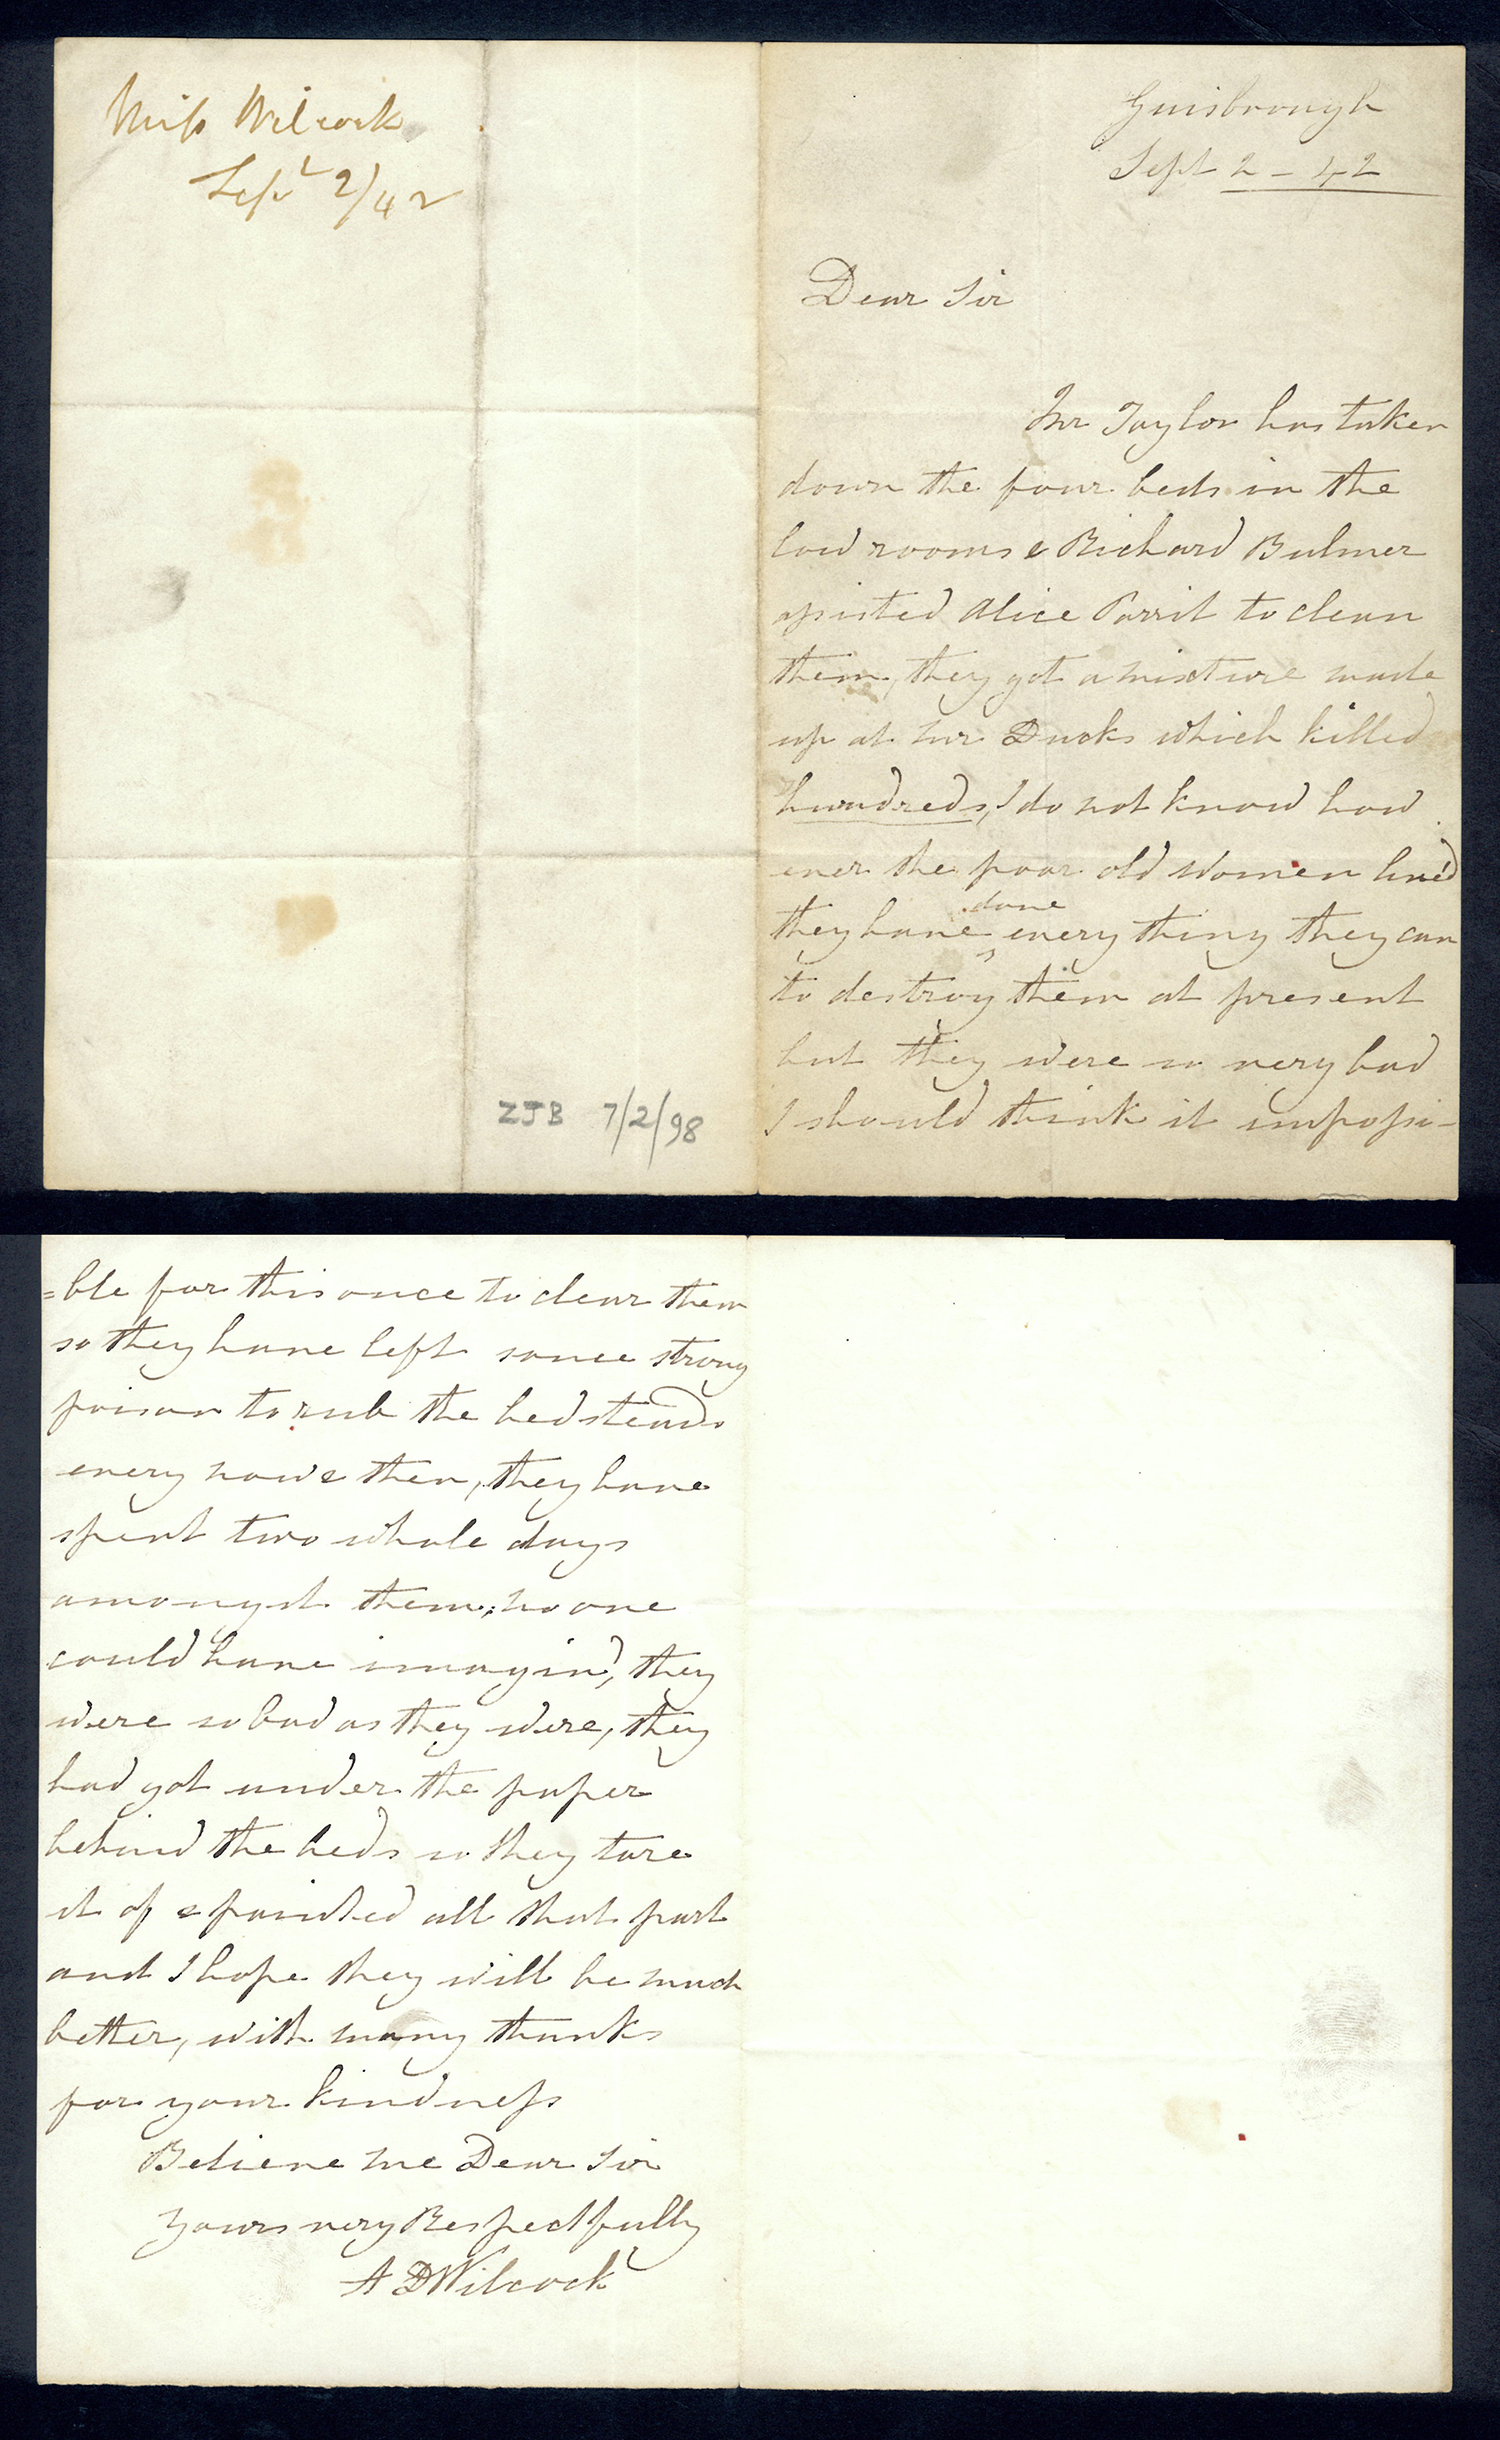 Miss Wilcock
Sept 2/42
ZJB 7/2/98
Guisbrough
Sept 2 - 42
Dear Sir
Mr Taylor has taken
down the four beds in the
low rooms & Richard Bulmer
assisted Alice Parrit to clean
them, they got a mixture made
up at Mr Ducks which killed
hundreds, I do not know how
ever the poor old women lived
they have done every thing they can
to destroy them at present
but they were so very bad
I should think it impossi-
=ble for this once to clear them
so they have left some strong
poison to rub the bedsteads
every now & then, they have
spent two whole days
amongst them; no one
could have imagin'd, they
were so bad as they were, they
had got under the paper
behind the beds so they tore
it of & painted all that part
and I hope they will be much
better, with many thanks
for your kindness
Believe me Dear Sir
yours very Respectfully
A D Wilcock